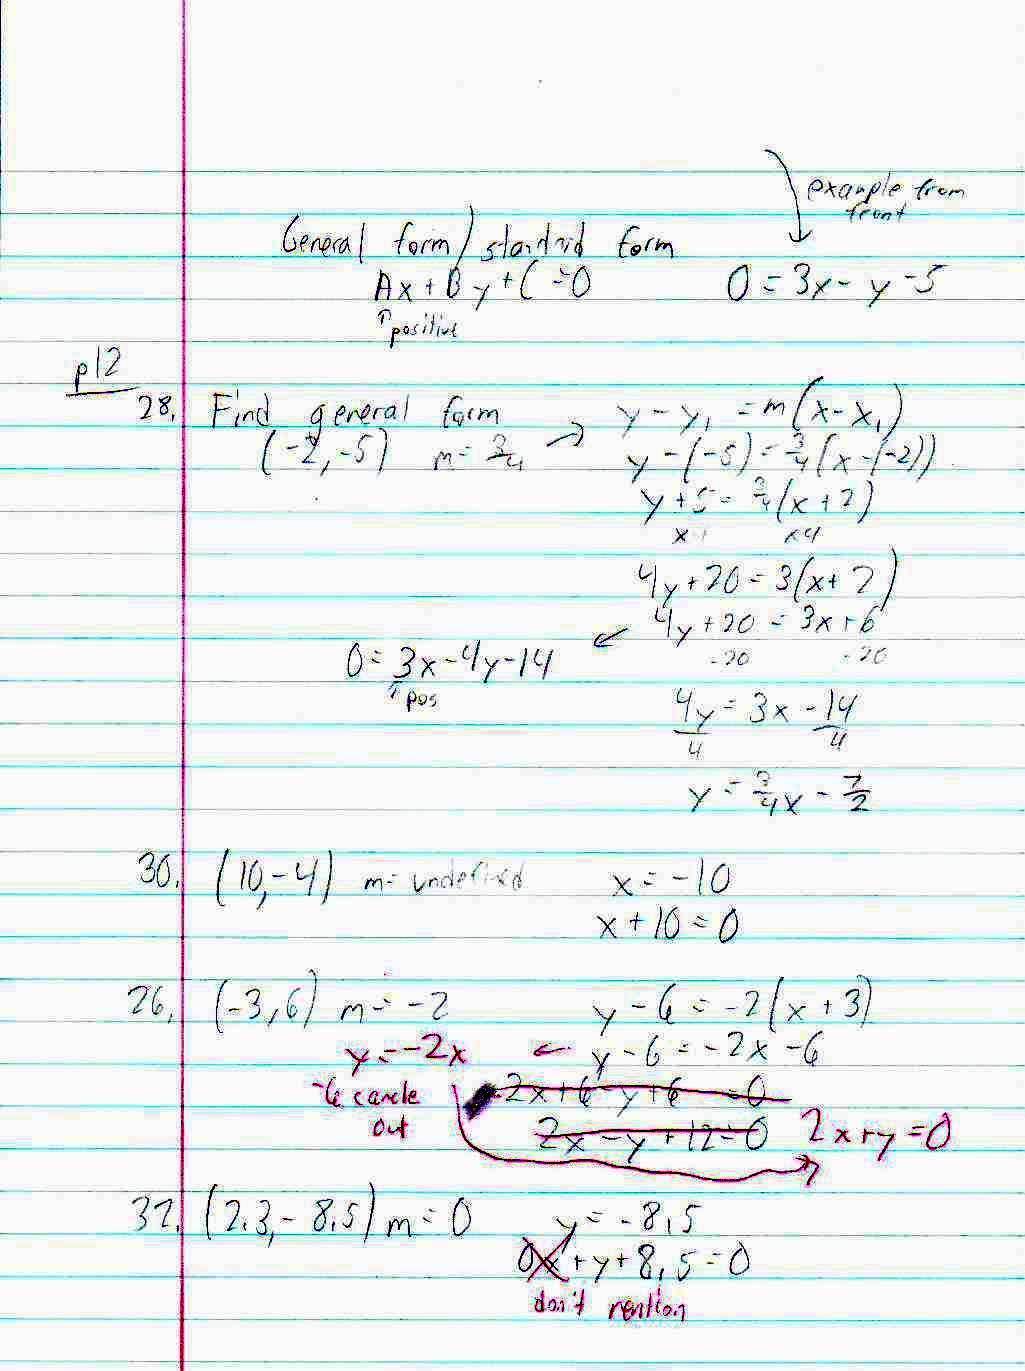 example from
front
General form/standrd form
Ax + By + C = 0
0 = 3x - y - 5
↑positive
p12
28. Find general form
y - y₁ = m(x - x₁)
(-2, -5) m = 3/4 →
y - (-5) = 3/4(x - (-2))
y + 5 = 3/4(x + 2)
x4
4y + 20 = 3(x + 2)
4y + 20 = 3x + 6
-20 -20
0 = 3x - 4y - 14
↑pos
4y = 3x - 14
4 4
y = 3/4x - 7/2
30. (10, -4) m = undefined x = -10
x + 10 = 0
26. (-3, 6) m = -2 y - 6 = -2(x + 3)
y = -2x ← y - 6 = -2x - 6
-6 cancle
out
2x + 6 - y + 6 = 0
2x - y + 12 = 0 2x + y = 0
32. (2.3, - 8.5) m = 0 y = - 8.5
0x + y + 8.5 = 0
don't mention